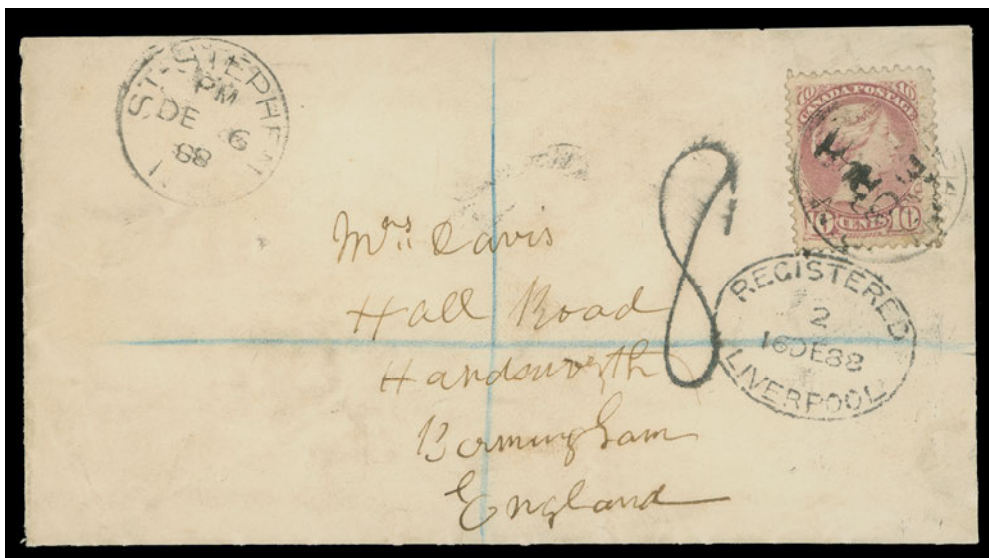 ST·STEPHEN
PM
DE 6
88
CANADA POSTAGE
10 10
10 CENTS 10
8
REGISTERED
2
16DE88
LIVERPOOL
Mrs Davis
Hall Road
Handsworth
Birmingham
England